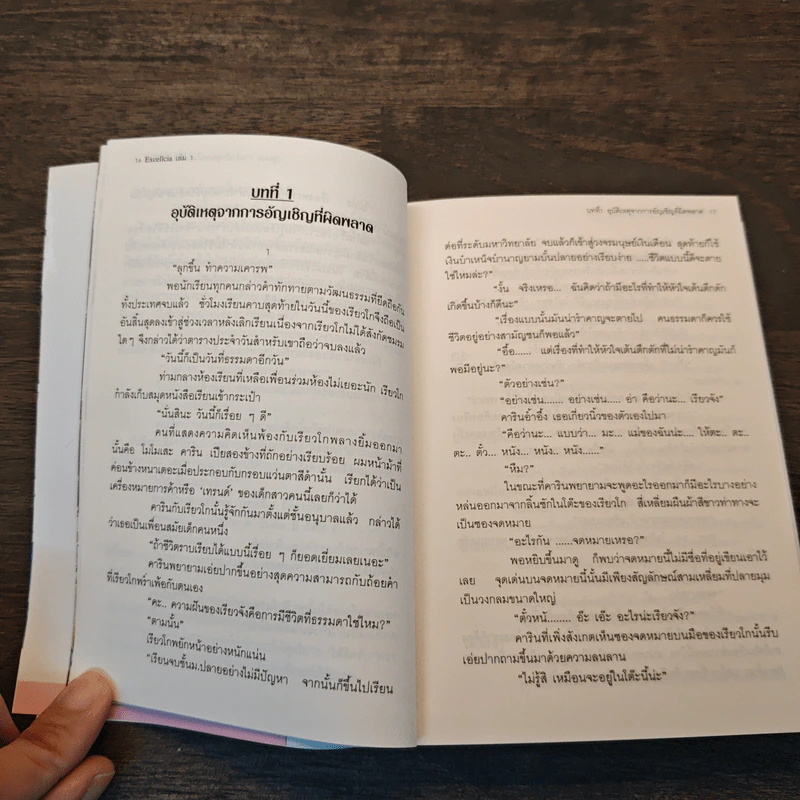 16 Excellcia เล่ม 1
บทที่ 1
อุบัติเหตุจากการอัญเชิญที่ผิดพลาด
1
“ลุกขึ้น ทำความเคารพ”
พอนักเรียนทุกคนกล่าวคำทักทายตามวัฒนธรรมที่ยึดถือกัน
ทั้งประเทศจบแล้ว ชั่วโมงเรียนคาบสุดท้ายในวันนี้ของเรียวโกจึงถือเป็น
อันสิ้นสุดลงเข้าสู่ช่วงเวลาหลังเลิกเรียนเนื่องจากเรียวโกไม่ได้สังกัดชมรม
ใดๆ จึงกล่าวได้ว่าตารางประจำวันสำหรับเขาถือว่าจบลงแล้ว
“วันนี้ก็เป็นวันที่ธรรมดาอีกวัน”
ท่ามกลางห้องเรียนที่เหลือเพื่อนร่วมห้องไม่เยอะนัก เรียวโก
กำลังเก็บสมุดหนังสือเรียนเข้ากระเป๋า
“นั่นสินะ วันนี้ก็เรื่อย ๆ ดี”
คนที่แสดงความคิดเห็นพ้องกับเรียวโกพลางยิ้มออกมา
นั้นคือ โมโมเสะ คาริน เปียสองข้างที่ถักอย่างเรียบร้อย ผมหน้าม้าที่
ค่อนข้างหนาเตอะเมื่อประกอบกับกรอบแว่นตาสีดำนั้น เรียกได้ว่าเป็น
เครื่องหมายการค้าหรือ ‘เทรนด์’ ของเด็กสาวคนนี้เลยก็ว่าได้
คารินกับเรียวโกนั้นรู้จักกันมาตั้งแต่ชั้นอนุบาลแล้ว กล่าวได้
ว่าเธอเป็นเพื่อนสมัยเด็กคนหนึ่ง
“ถ้าชีวิตราบเรียบได้แบบนี้เรื่อย ๆ ก็ยอดเยี่ยมเลยเนอะ”
คารินพยายามเอ่ยปากขึ้นอย่างสุดความสามารถกับถ้อยคำ
ที่เรียวโกพร่ำเพ้อกับตนเอง
“คะ.. ความฝันของเรียวจังคือการมีชีวิตที่ธรรมดาใช่ไหม?”
“ตามนั้น”
เรียวโกพยักหน้าอย่างหนักแน่น
“เรียนจบชั้นม.ปลายอย่างไม่มีปัญหา จากนั้นก็ขึ้นไปเรียน
บทที่1 อุบัติเหตุจากการอัญเชิญที่ผิดพลาด 17
ต่อที่ระดับมหาวิทยาลัย จบแล้วก็เข้าสู่วงจรมนุษย์เงินเดือน สุดท้ายก็ใช้
เงินบำเหน็จบำนาญยามบั้นปลายอย่างเรียบง่าย .....ชีวิตแบบนี้ดีจะตาย
ใช่ไหมล่ะ?”
“งั้น จริงเหรอ... ฉันคิดว่าถ้ามีอะไรที่ทำให้หัวใจเต้นตึกตัก
เกิดขึ้นบ้างก็ดีนะ”
“เรื่องแบบนั้นมันน่ารำคาญจะตายไป คนธรรมดาก็ควรใช้
ชีวิตอยู่อย่างสามัญชนก็พอแล้ว”
“อื้อ...... แต่เรื่องที่ทำให้หัวใจเต้นตึกตักที่ไม่น่ารำคาญมันก็
พอมีอยู่นะ?”
“ตัวอย่างเช่น?”
“อย่างเช่น....... อย่างเช่น..... อ่า คือว่านะ... เรียวจัง”
คารินอ้ำอึ้ง เธอเกี่ยวนิ้วของตัวเองไปมา
“คือว่านะ... แบบว่า... มะ... แม่ของฉันน่ะ.... ให้ตะ.. ตะ..
ตะ.. ตั๋ว... หนัง... หนัง... หนัง......”
“หืม?”
ในขณะที่คารินพยายามจะพูดอะไรออกมาก็มีอะไรบางอย่าง
หล่นออกมาจากลิ้นชักในโต๊ะของเรียวโก สี่เหลี่ยมผืนผ้าสีขาวท่าทางจะ
เป็นซองจดหมาย
“อะไรกัน ......จดหมายเหรอ?”
พอหยิบขึ้นมาดู ก็พบว่าจดหมายนี้ไม่มีชื่อที่อยู่เขียนเอาไว้
เลย จุดเด่นบนจดหมายนี้นั้นมีเพียงสัญลักษณ์สามเหลี่ยมที่ปลายมุม
เป็นวงกลมขนาดใหญ่
“ตั๋วหนั........ อ๊ะ เอ๊ะ อะไรน่ะเรียวจัง?”
คารินที่เพิ่งสังเกตเห็นซองจดหมายบนมือของเรียวโกนั้นรีบ
เอ่ยปากถามขึ้นมาด้วยความลนลาน
“ไม่รู้สิ เหมือนจะอยู่ในโต๊ะนี้น่ะ”